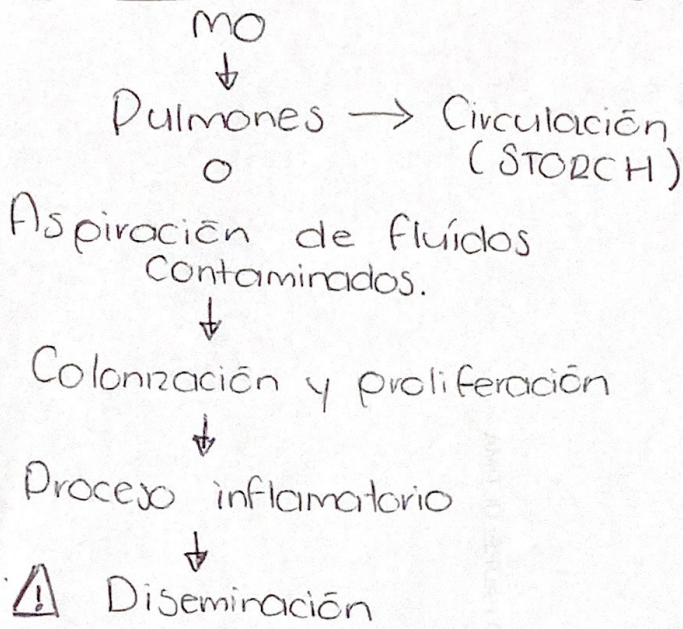 MO
↓
Pulmones → Circulación
(STORCH)
O
Aspiración de fluídos
contaminados.
↓
Colonización y proliferación
↓
Proceso inflamatorio
↓
⚠ Diseminación